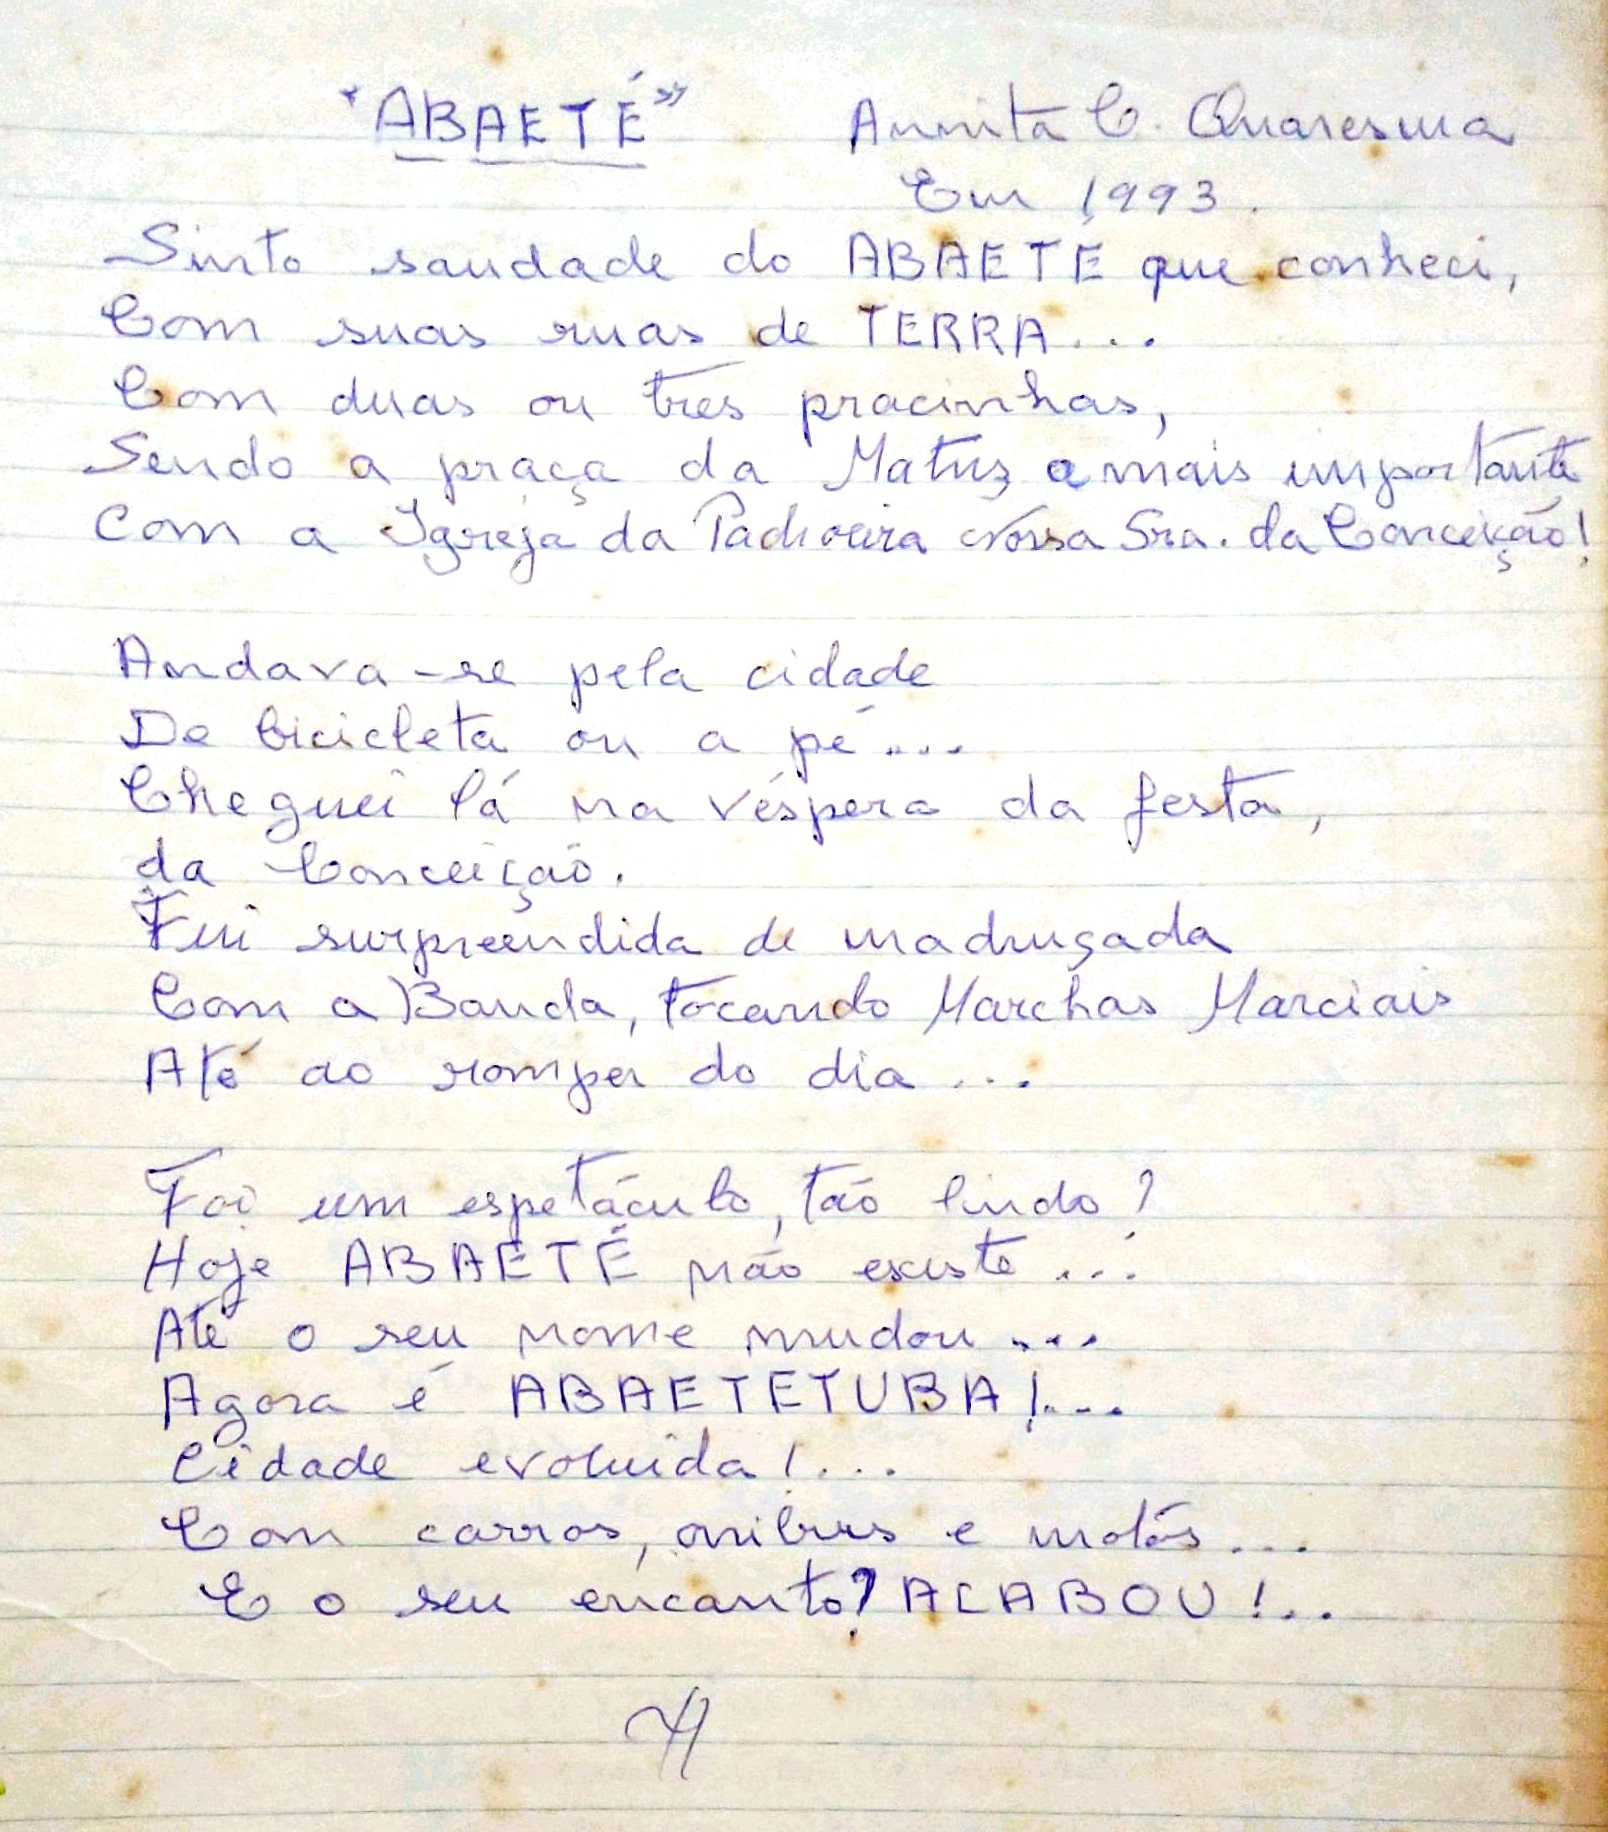 "ABAETÉ" Annita C. Quaresma
Em 1993.
Sinto saudade do ABAETÉ que conheci,
Com suas ruas de TERRA...
Com duas ou três pracinhas,
Sendo a praça da Matriz a mais importante
Com a Igreja da Padroeira Nossa Sra. da Conceição!
Andava-se pela cidade
De bicicleta ou a pé...
Cheguei lá na véspera da festa,
da Conceição.
Fui surpreendida de madrugada
Com a Banda, tocando Marchas Marciais
Até ao romper do dia...
Foi um espetáculo, tão lindo?
Hoje ABAETÉ não existe...
Até o seu nome mudou...
Agora é ABAETETUBA!...
Cidade evoluida!...
Com carros, onibus e motos...
E o seu encanto? ACABOU!...